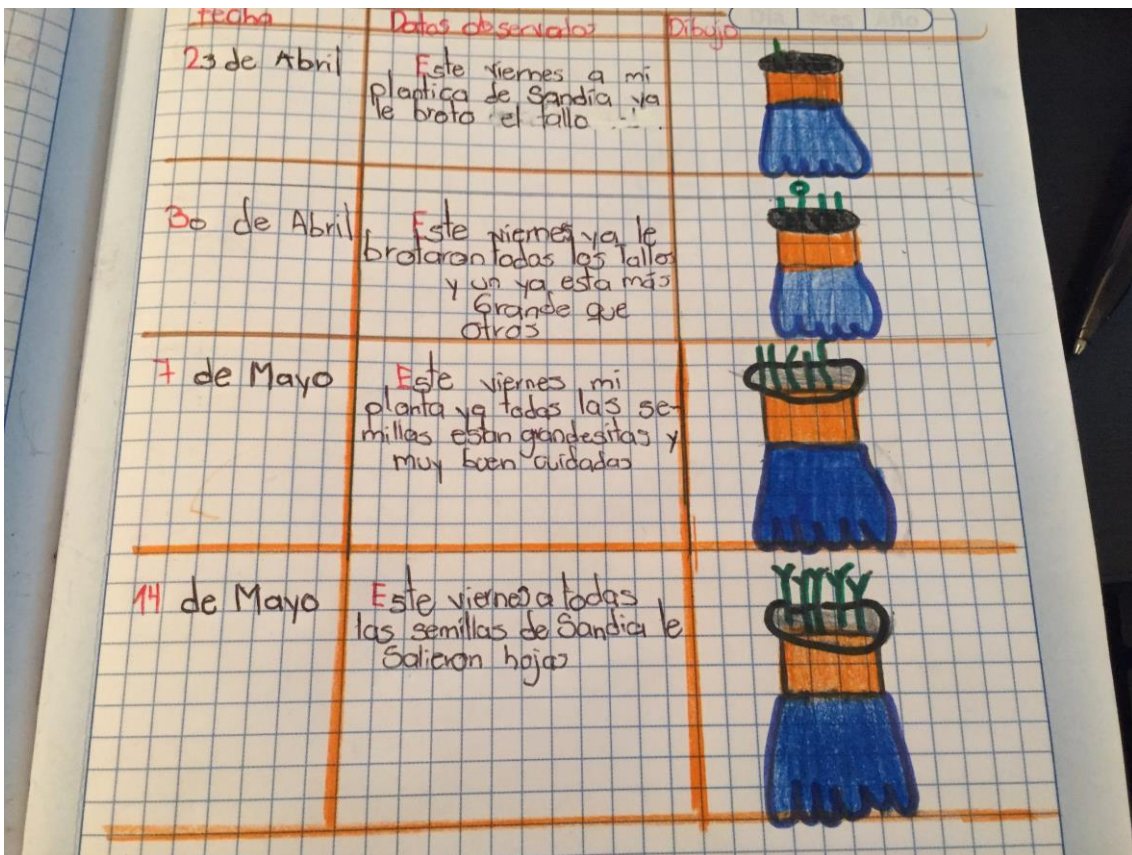 Fecha
Datos observados
Dibujo
Día Mes Año
23 de Abril
Este viernes a mi
plantica de Sandía ya
le broto el tallo
30 de Abril
Este viernes ya le
brotaron todas los tallos
y un ya esta más
Grande que
otros
7 de Mayo
Este viernes mi
planta ya todas las se-
millas estan grandesitas y
muy buen cuidadas
14 de Mayo
Este viernes a todas
las semillas de Sandia le
Salieron hojas